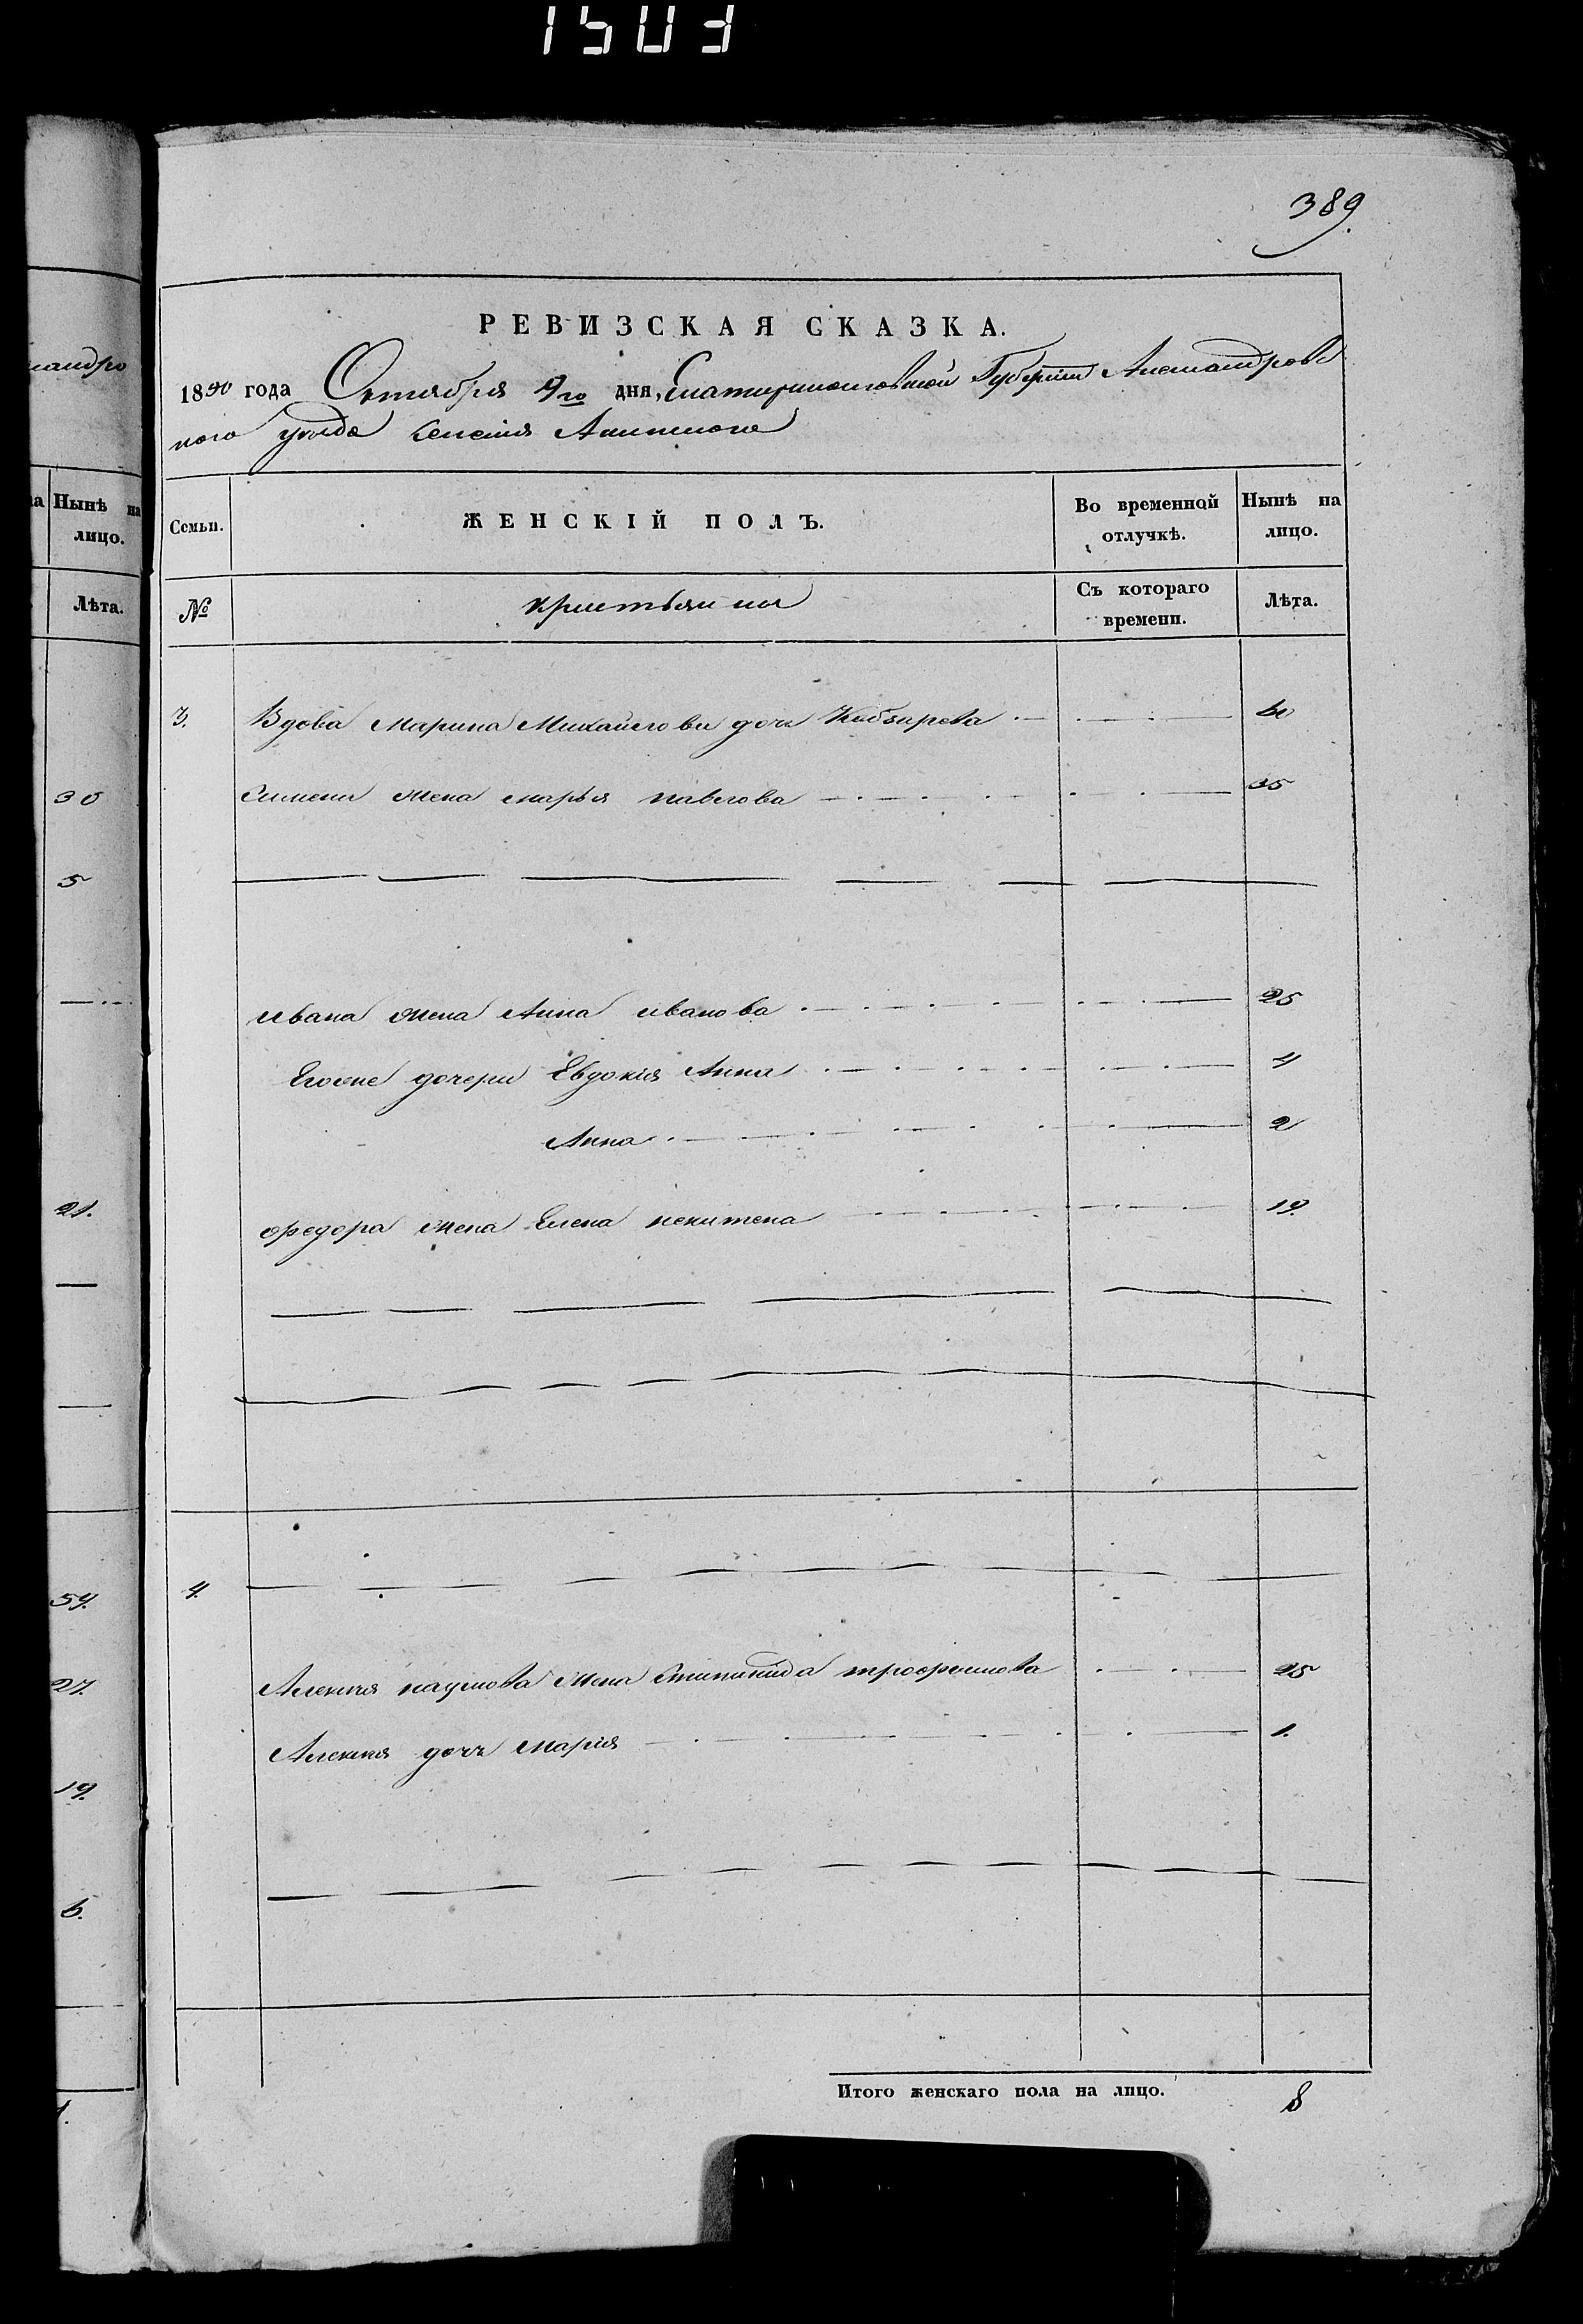 1503
389.
РЕВИЗСКАЯ СКАЗКА.
1850 года Октября 9го дня, Екатеринославской Губерніи Александровс
кого уѣзда селенія
Семьи.
ЖЕНСКІЙ ПОЛЪ.
Во временной отлучкѣ.
Нынѣ на лицо.
№
Съ котораго времени.
Лѣта.
3. Вдова Марина Михайлова дочь 60
жена марья павлова 35
ивана жена Анна иванова 25
дочери Евдокия Анна 4
Анна 2
федора жена Елена 19.
4.
Алексея наумова жена трофимова 25
Алексея дочь мария 1.
Итого женскаго пола на лицо. 8
андро
Нынѣ на
лицо.
Лѣта.
30
5
21.
54.
27.
19.
6.